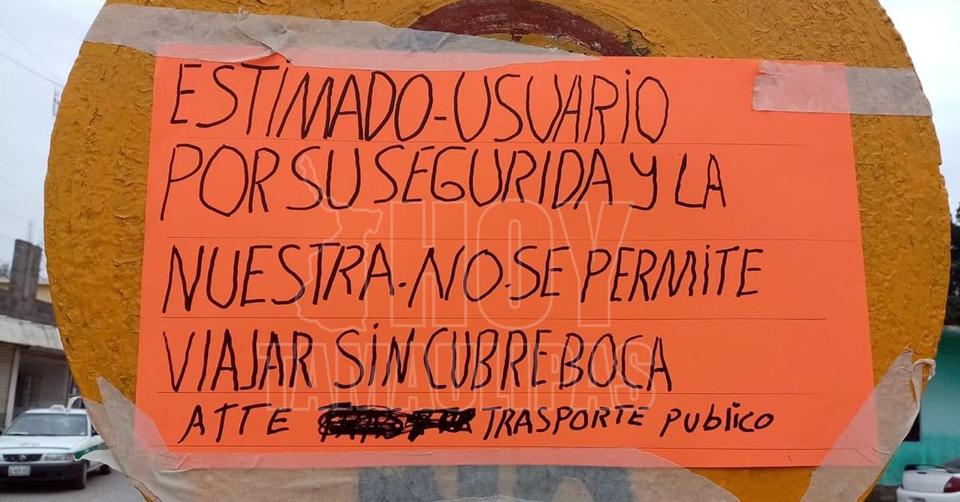 ESTIMADO-USUARIO
POR SU SEGURIDA Y LA
NUESTRA.NO.SE PERMITE
VIAJAR SIN CUBREBOCA
ATTE TRASPORTE PUBLICO
HOY
TAMAULIPAS
NO